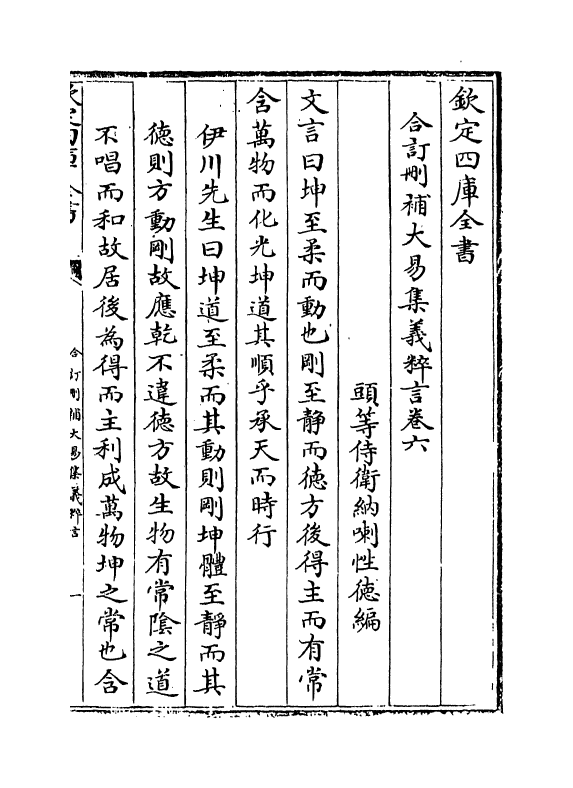 欽定四庫全書
合訂刪補大易集義粹言卷六
頭等侍衛納喇性德編
文言曰坤至柔而動也剛至静而德方後得主而有常
含萬物而化光坤道其順乎承天而時行
伊川先生曰坤道至柔而其動則剛坤體至静而其
德則方動剛故應乾不違德方故生物有常陰之道
不唱而和故居後為得而主利成萬物坤之常也含
欽定四庫全書
合訂刪補大易集義粹言
一